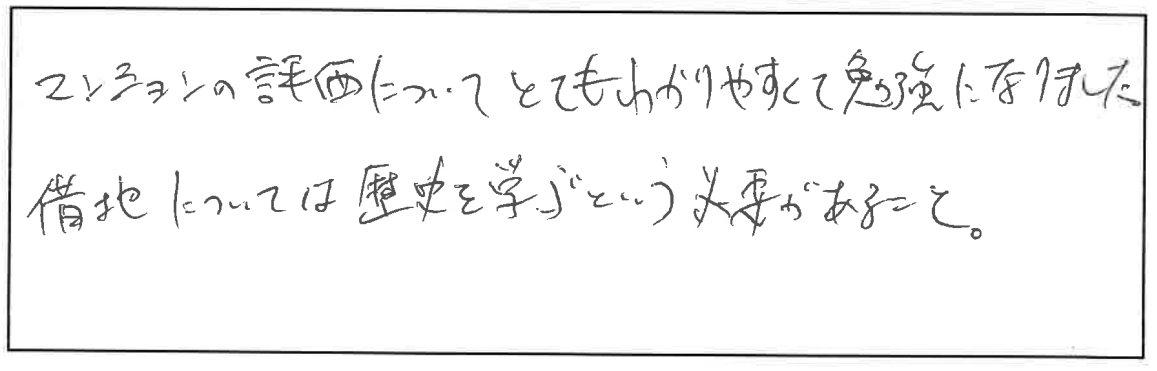 マンションの評価についてとてもわかりやすくて勉強になりました。
借地については歴史を学ぶという必要があること。